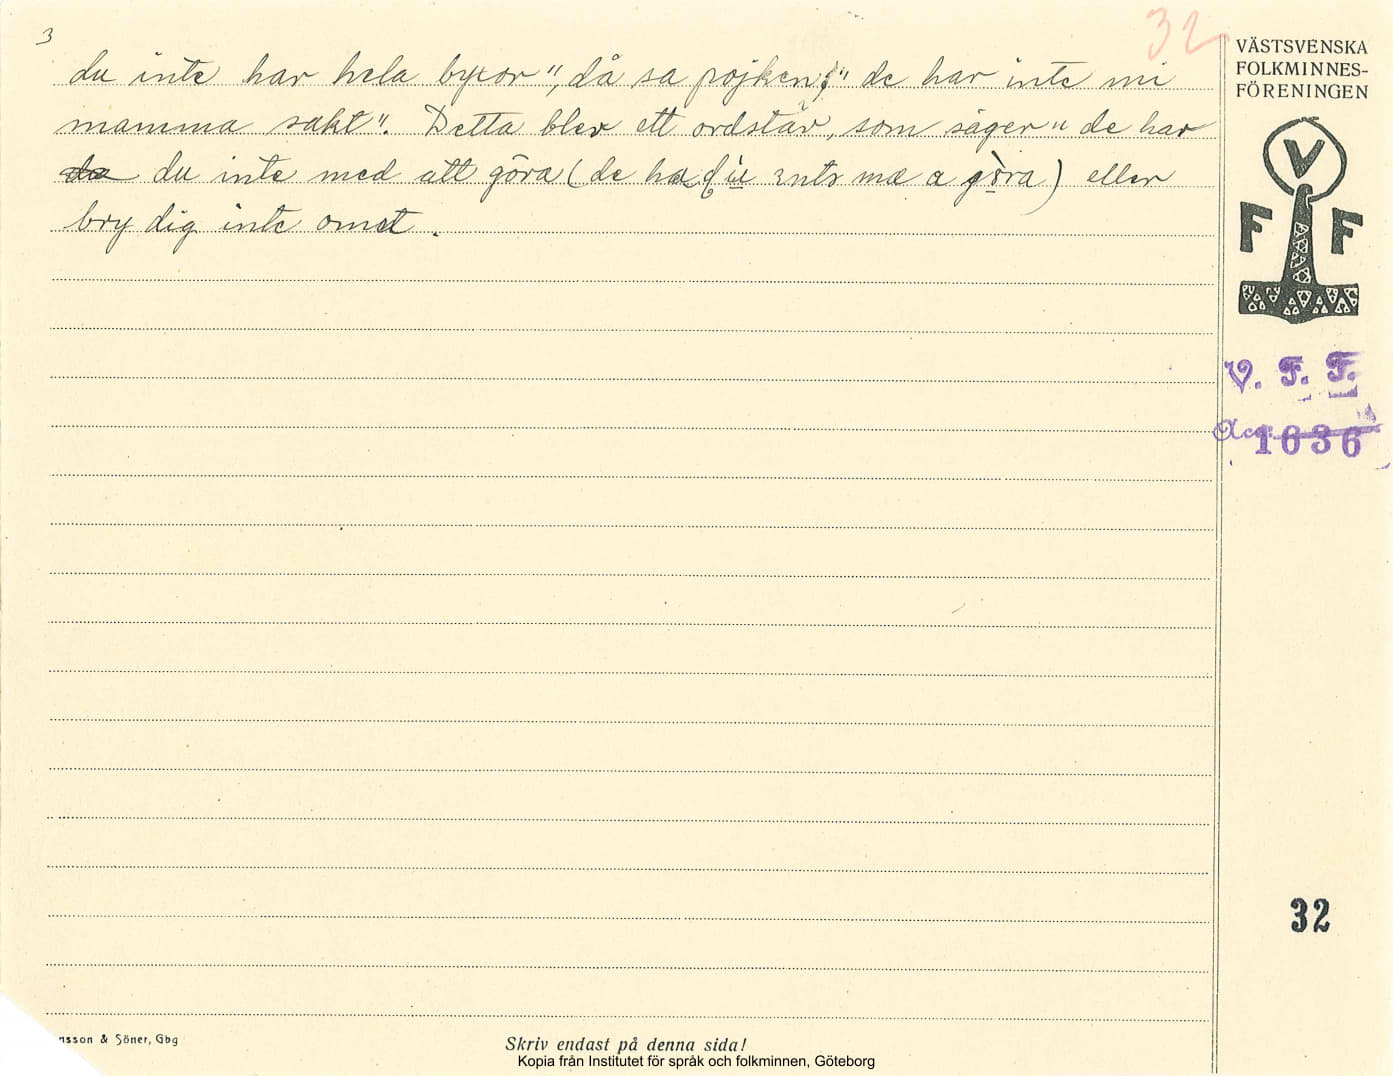 3
32
du inte har hela byxor", då sa pojken, "de har inte mi
mamma sakt". Detta blev ett ordstäv, som säger "de har
du inte med att göra (de ha du inte mæ a göra) eller
bry dig inte omet.
VÄSTSVENSKA
FOLKMINNES-
FÖRENINGEN
V
F F
V. F. F.
Acc. 1636
32
nsson & Söner, Gbg
Skriv endast på denna sida!
Kopia från Institutet för språk och folkminnen, Göteborg